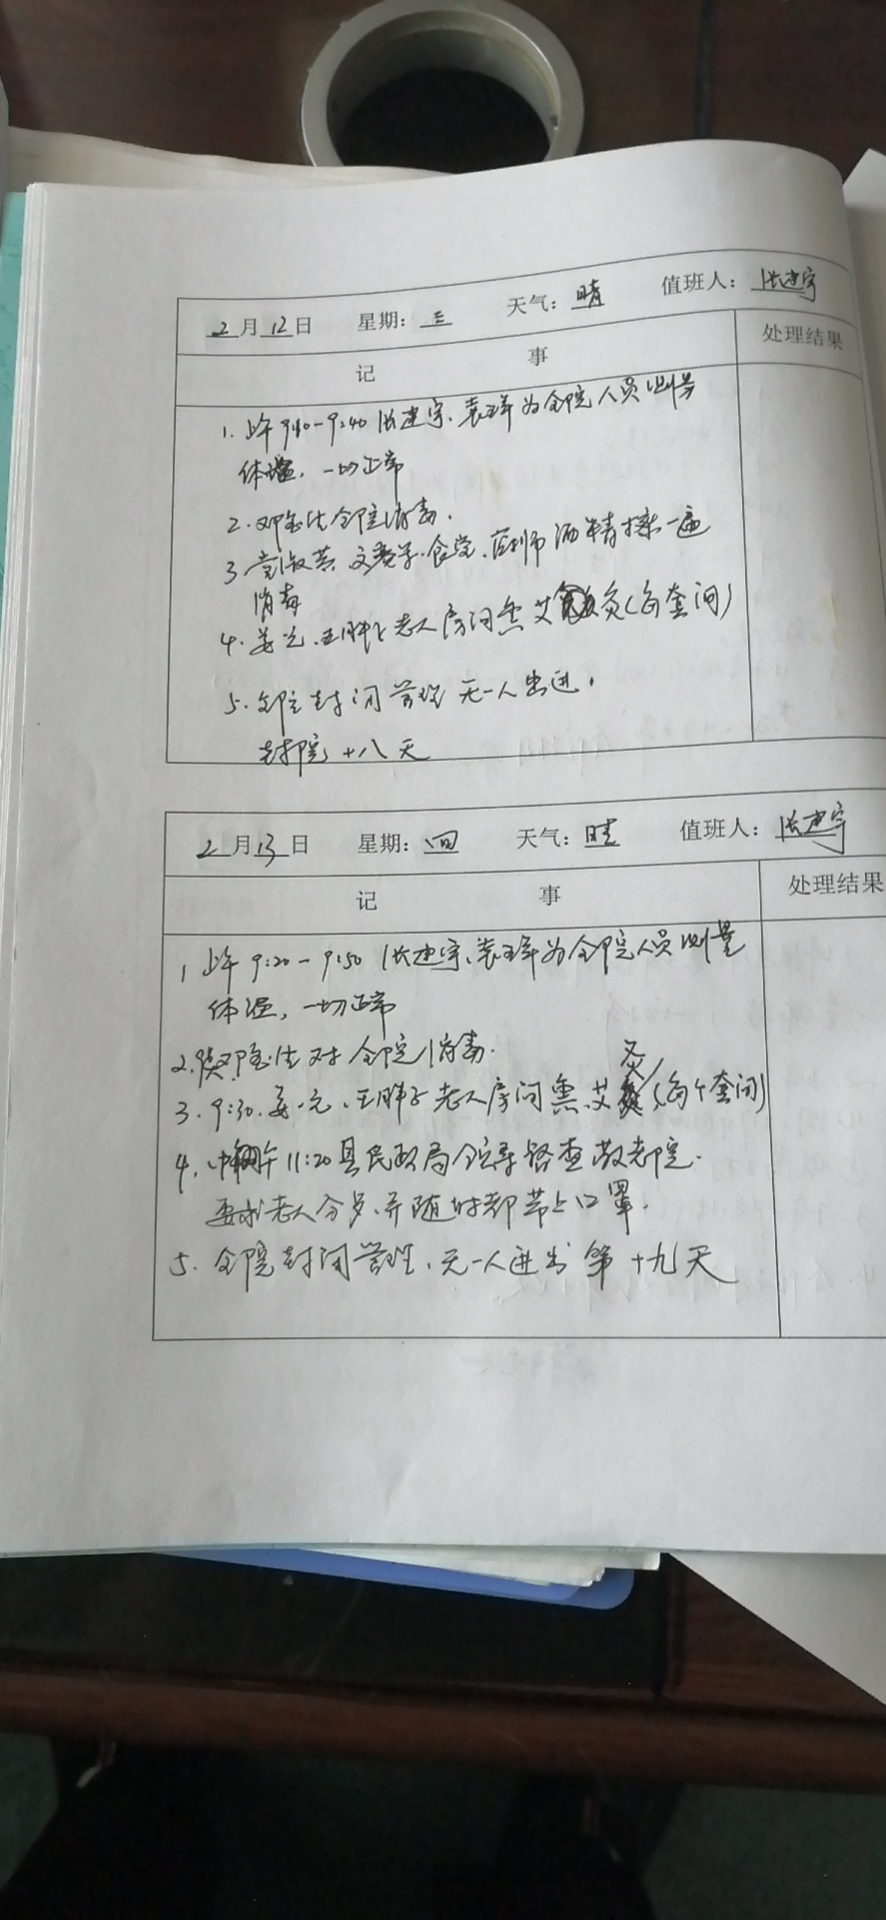 2月12日 星期：三 天气：晴 值班人：张建宇
记事 处理结果
1. 上午9:10-9:40张建宇、袁玉军为全院人员测量
体温，一切正常
2. 邓金仕全院消毒.
3 文 食堂、 酒精擦一遍
消毒
4. 姜元、王胖子老人房间熏艾灸(每套间)
5. 全院封闭管理 无一人出进.
封院十八天
2月13日 星期：四 天气：晴 值班人：张建宇
记事 处理结果
1 上午9:20-9:50 张建宇、袁玉军为全院人员测量
体温，一切正常
2. 对全院消毒.
3. 9:30. 姜元、王胖子老人房间熏艾灸(每个套间)
4. 中午11:20县民政局领导督查敬老院.
要求老人分步、并随时都带上口罩.
5. 全院封闭管理、无一人进出 第十九天